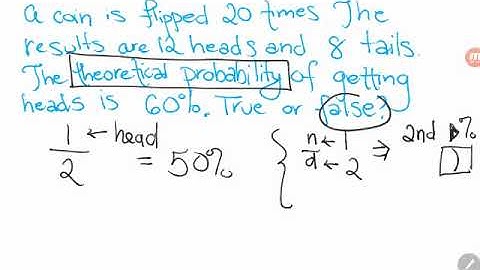 A coin is flipped 20 times The
results are 12 heads and 8 tails.
The theoretical probability of getting
heads is 60%. True or false?
1 ← head
2
= 50%
n ← 1
d ← 2
⇒ 2nd %